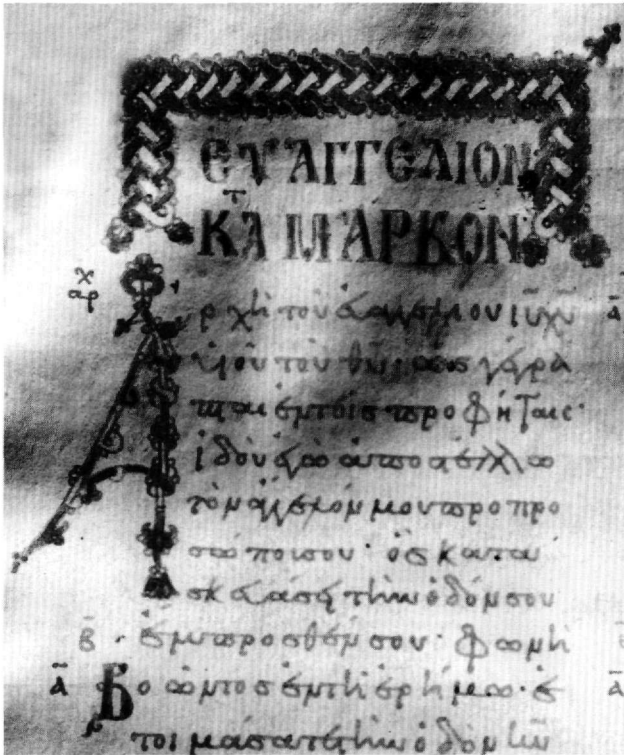 ΕΥΑΓΓΕΛΙΟΝ
ΚΑΤ ΜΑΡΚΟΝ
αρχ
Αρχὴ τοῦ εὐαγγελίου ἰῡ χῡ
υἱοῦ τοῦ θῡ· ὡς γέγρα
πται ἐν τοῖς προφήταις·
ἰδοὺ ἐγὼ ἀποστέλλω
τὸν ἄγγελόν μου πρὸ προ
σώπου σου· ὃς κατα
σκευάσει τὴν ὁδόν σου
ἔμπροσθέν σου· φωνὴ
βοῶντος ἐν τῇ ἐρήμω· ἑ
τοιμάσατε τὴν ὁδὸν κῡ